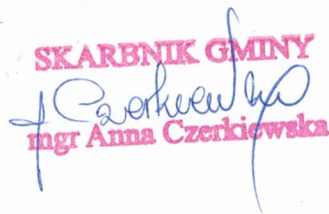 SKARBNIK GMINY
A Czerkiewska
mgr Anna Czerkiewska